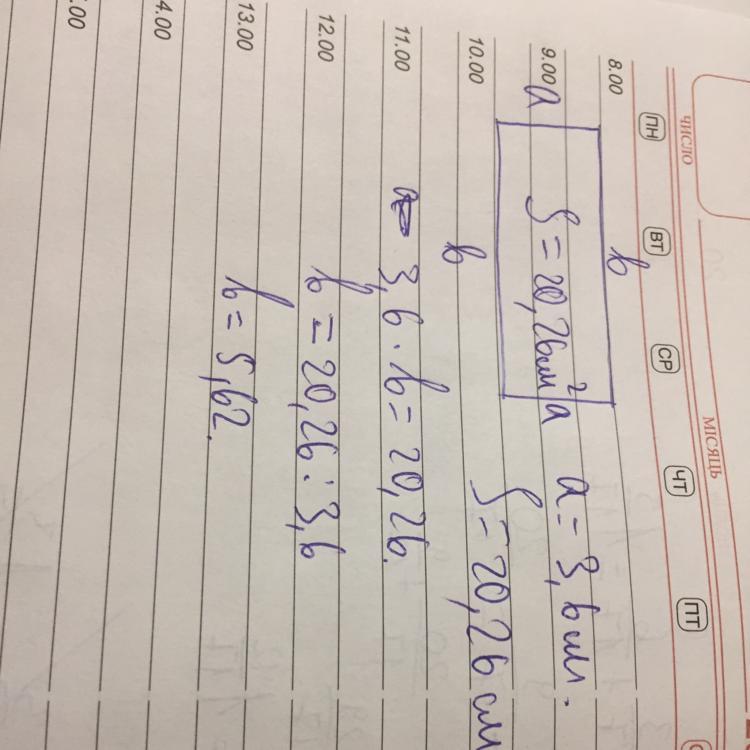 ЧИСЛО МІСЯЦЬ
ПН ВТ СР ЧТ ПТ С
8.00 b
9.00 a S = 20,26см² a a = 3,6 см.
10.00 b S = 20,26 см
11.00 3,6 · b = 20,26.
12.00 b = 20,26 : 3,6
13.00 b = 5,62.
4.00
.00